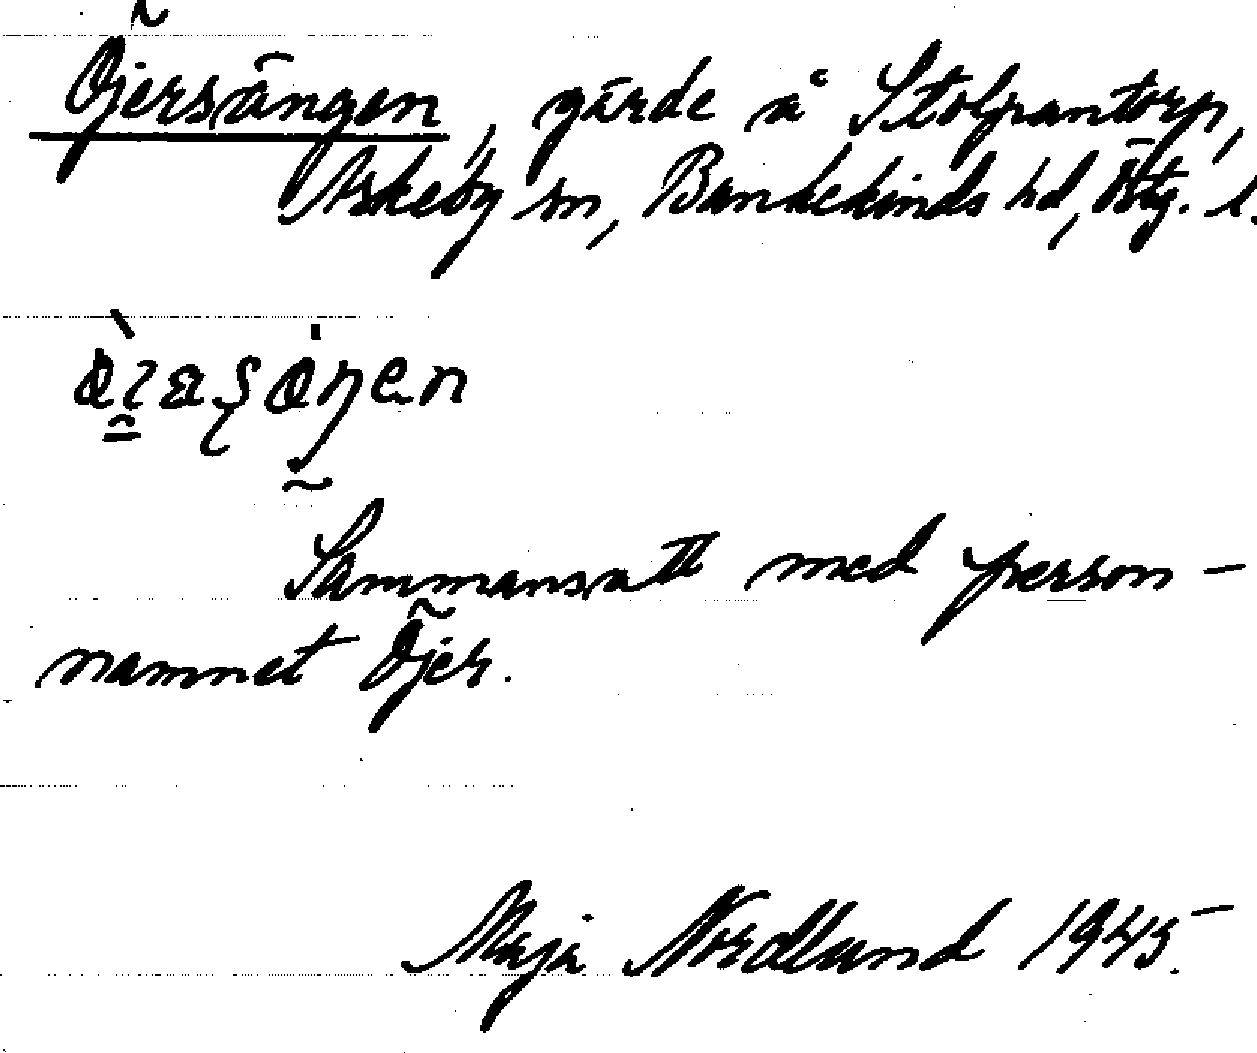 Öjersängen, gärde å Stolpantorp,
Askeby sn, Bankekinds hd, Östg. l.
Sammansatt med person-
namnet Öjer.
Maja Nordlund 1945.